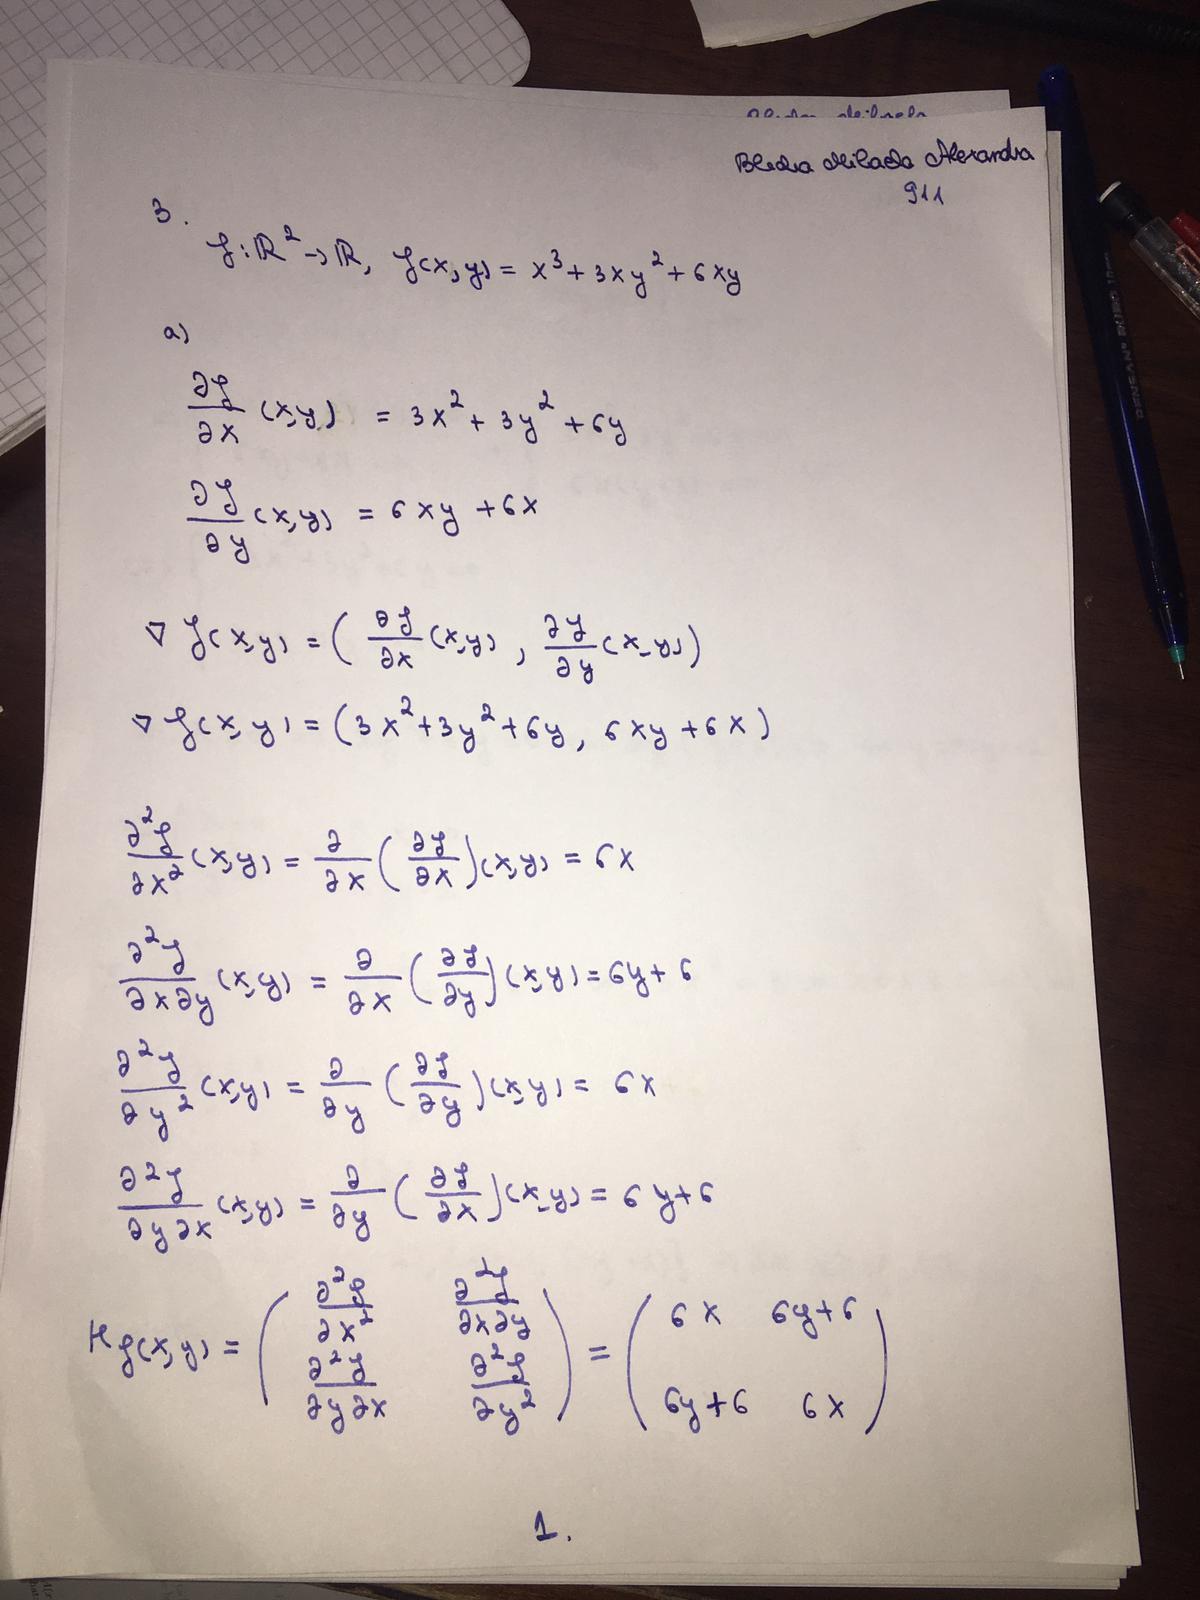 Alexandra
911
3.
f: ℝ² → ℝ, f(x,y) = x³ + 3xy² + 6xy
a)
∂f/∂x (x,y) = 3x² + 3y² + 6y
∂f/∂y (x,y) = 6xy + 6x
∇ f(x,y) = (∂f/∂x (x,y), ∂f/∂y (x,y))
∇ f(x,y) = (3x² + 3y² + 6y, 6xy + 6x)
∂²f/∂x² (x,y) = ∂/∂x (∂f/∂x)(x,y) = 6x
∂²f/∂x∂y (x,y) = ∂/∂x (∂f/∂y)(x,y) = 6y + 6
∂²f/∂y² (x,y) = ∂/∂y (∂f/∂y)(x,y) = 6x
∂²f/∂y∂x (x,y) = ∂/∂y (∂f/∂x)(x,y) = 6y + 6
Hf(x,y) = ( ∂²f/∂x² ∂²f/∂x∂y ; ∂²f/∂y∂x ∂²f/∂y² ) = ( 6x 6y+6 ; 6y+6 6x )
1.